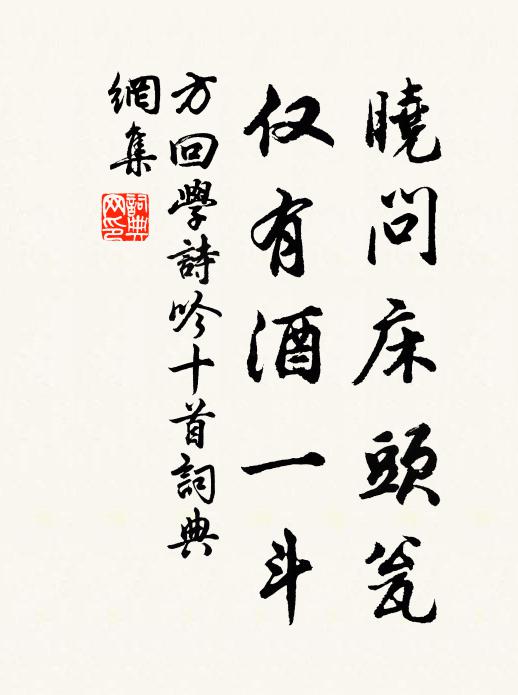 曉問床頭瓮
仅有酒一斗
方回學詩吟十首詞典
網集
詞典
网印